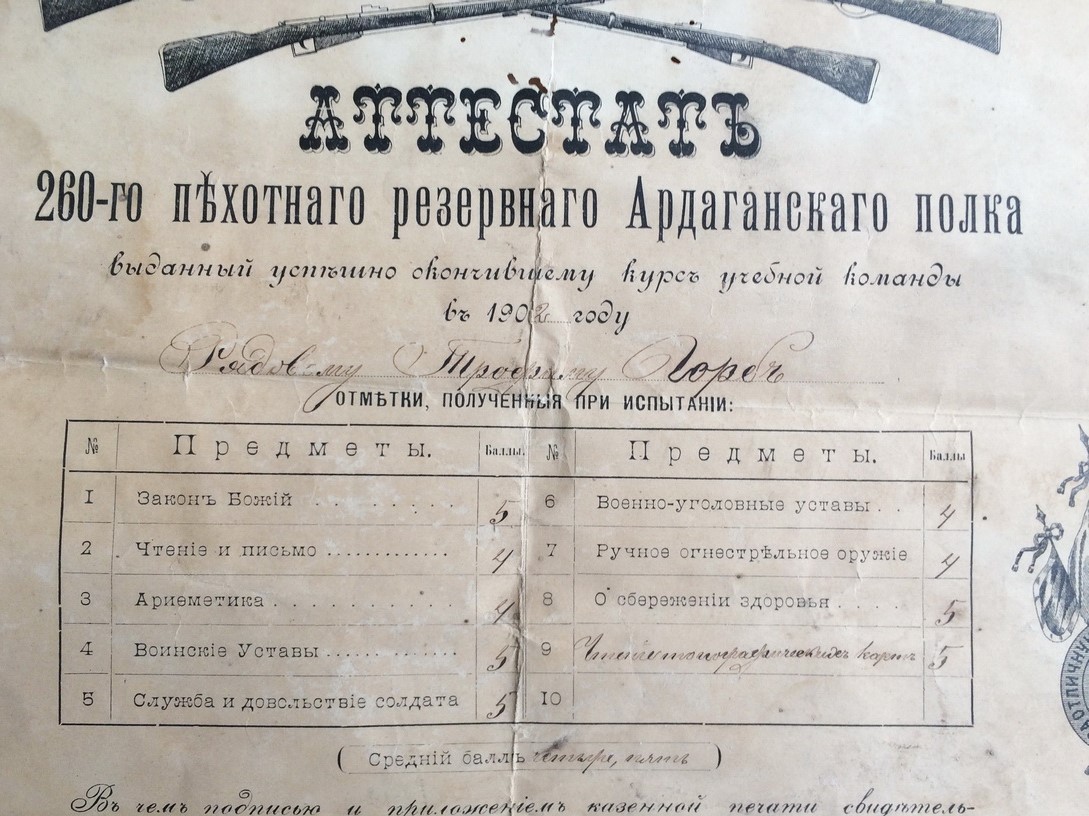 АТТЕСТАТЪ
260-го пѣхотнаго резервнаго Ардаганскаго полка
выданный успѣшно окончившему курсъ учебной команды
въ 1902 году
Рядовому Трофиму Горбъ
ОТМѢТКИ, ПОЛУЧЕННЫЯ ПРИ ИСПЫТАНІИ:
№ Предметы. Баллы. № Предметы. Баллы
1 Законъ Божій 5 6 Военно-уголовные уставы 4
2 Чтеніе и письмо 4 7 Ручное огнестрѣльное оружіе 4
3 Ариѳметика 4 8 О сбереженіи здоровья 5
4 Воинскіе Уставы 5 9 Чтеніе топографическихъ картъ 5
5 Служба и довольствіе солдата 5 10
(Средній баллъ четыре, пять)
Въ чемъ подписью и приложеніемъ казенной печати свидѣтель-
ОТЛИЧНУЮ